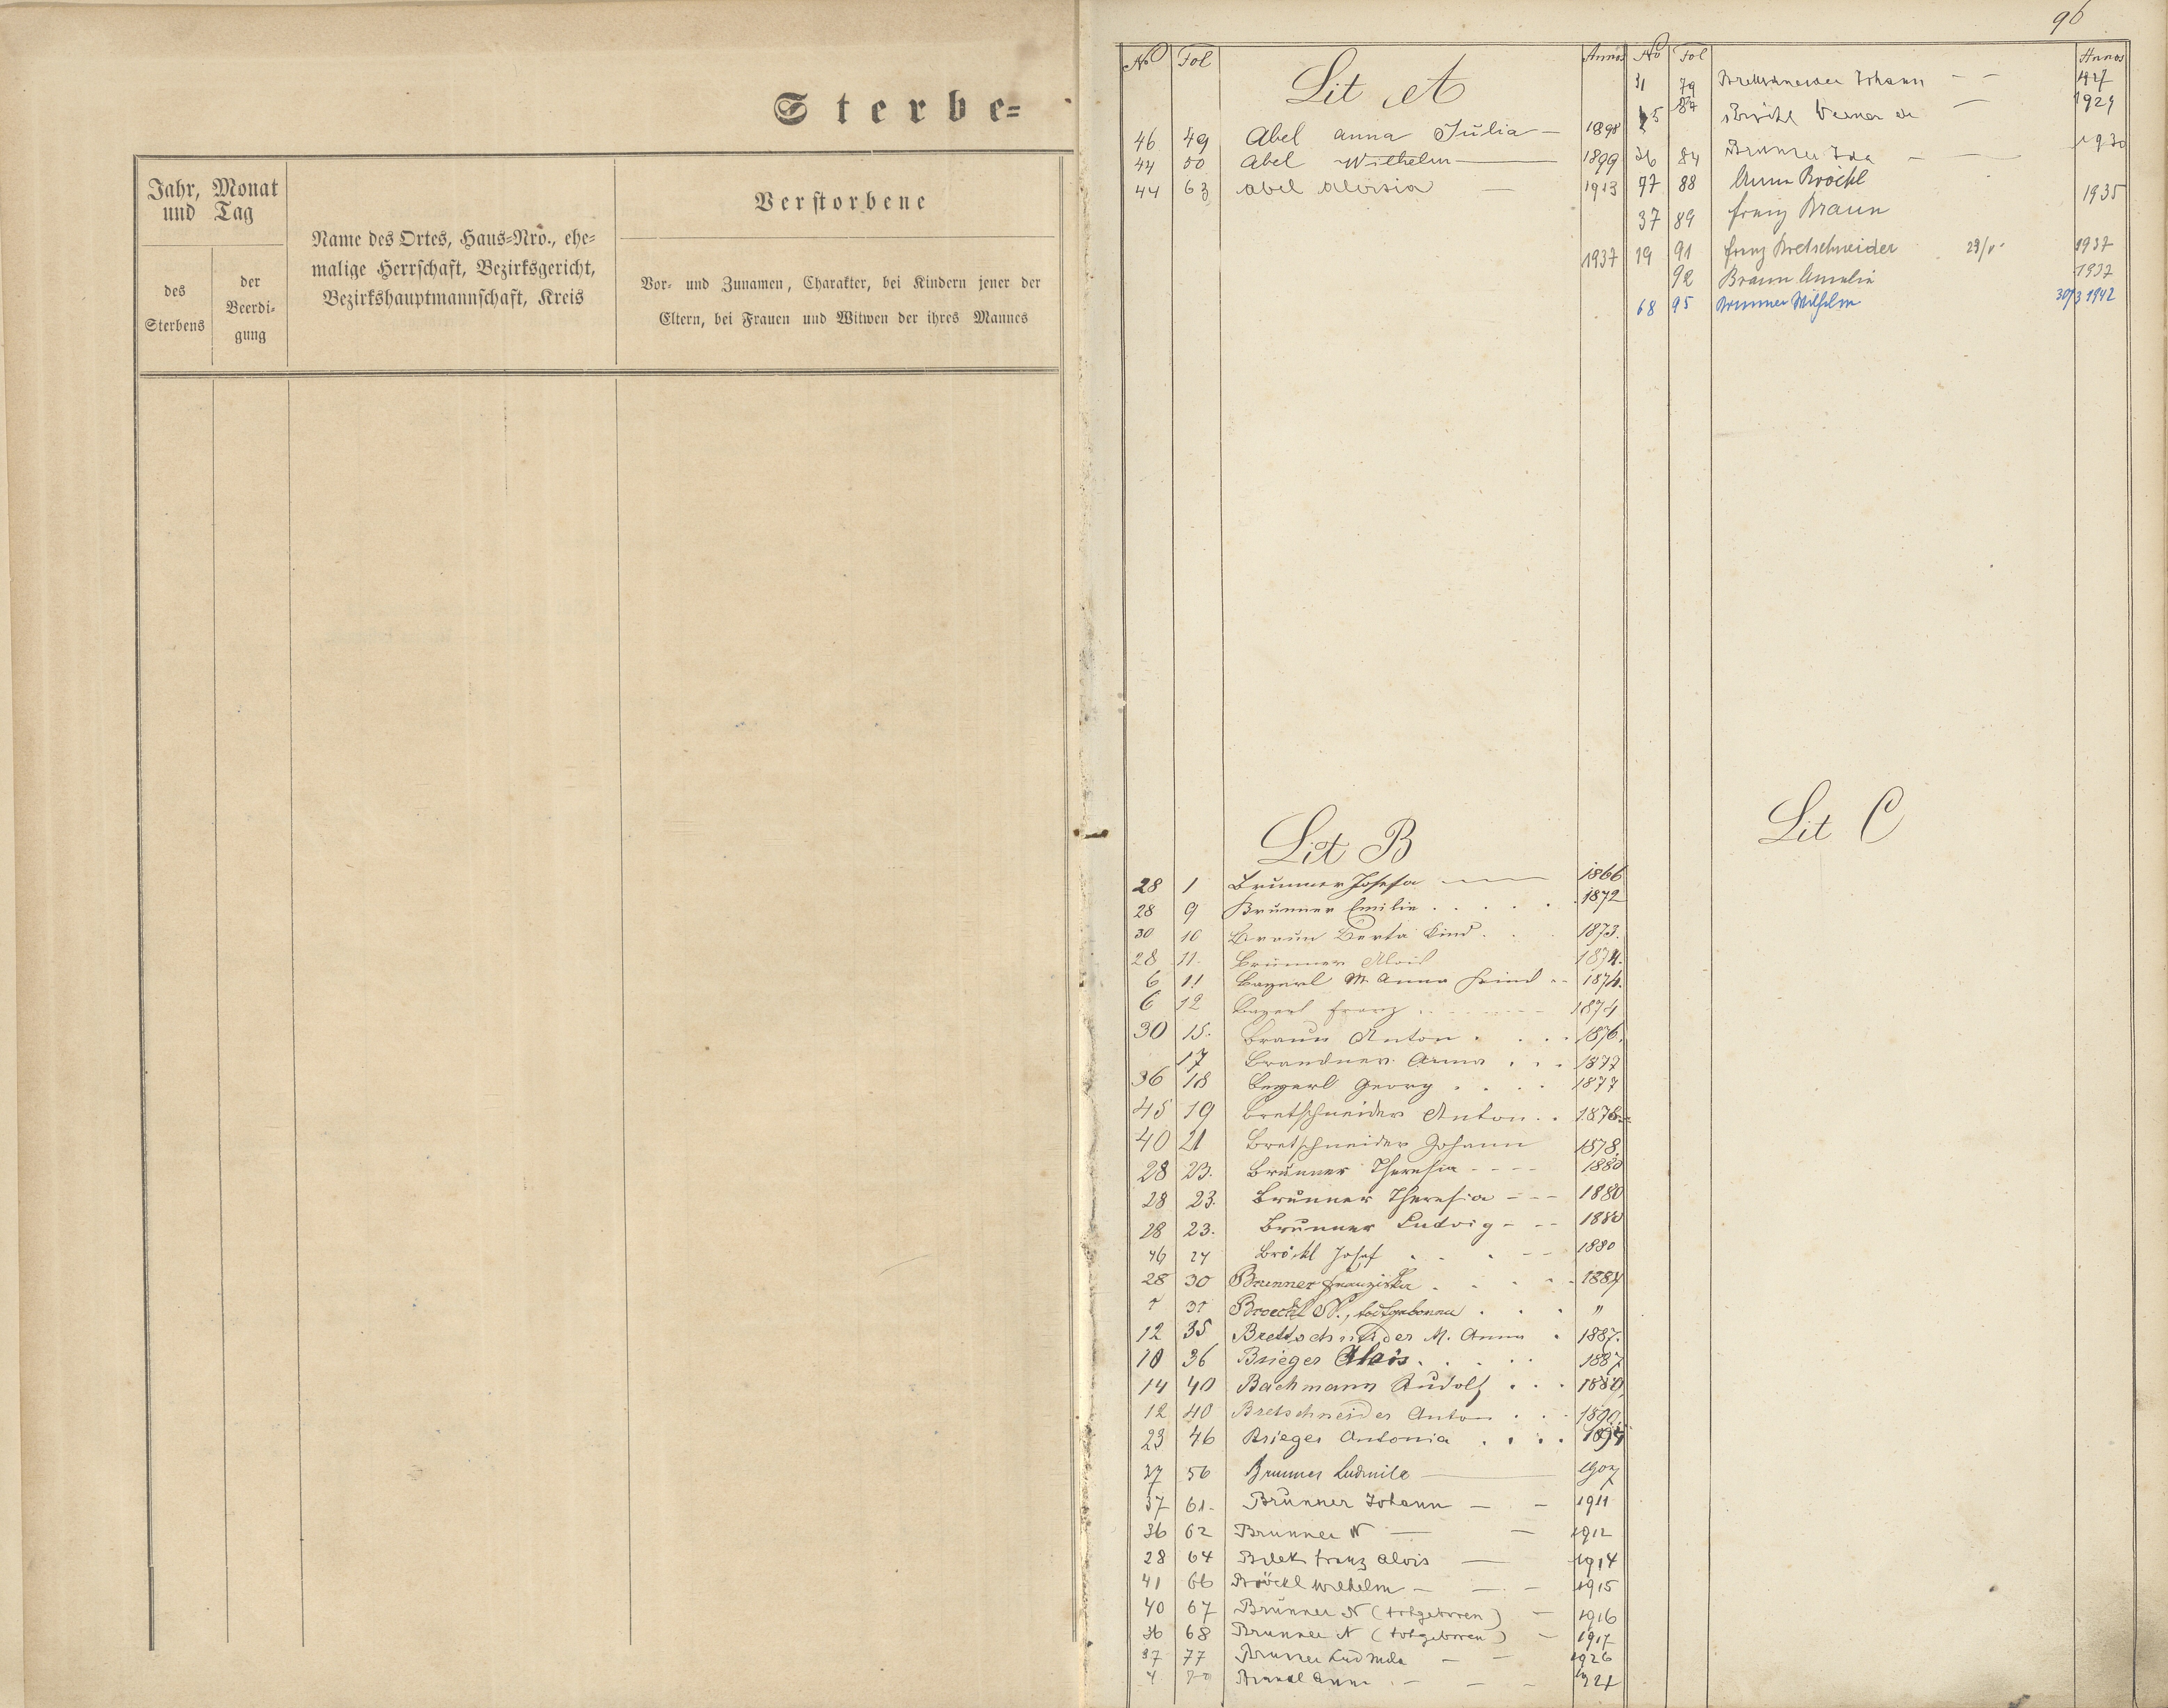 Sterbe=
Jahr, Monat
und Tag
des
Sterbens
der
Beerdi-
gung
Name des Ortes, Haus=Nro., ehe=
malige Herrschaft, Bezirksgericht,
Bezirkshauptmannschaft, Kreis
Verstorbene
Vor- und Zunamen, Charakter, bei Kindern jener der
Eltern, bei Frauen und Witwen der ihres Mannes
96
No Fol Lit A Annos
46 49 Abel anna Julia — 1898
44 50 Abel Wilhelm — 1899
44 63 Abel Aloisia — 1913
1937
Lit B
28 1 Brunner Josefa — 1866
28 9 Brunner Emilie . . . . . 1872
30 10 Braun Berta Kind . . 1873.
28 11. Brunner Alois 1874.
6 11 Bayerl M. Anna Kind .. 1874.
6 12 Bayerl Franz 1874
30 15. Braun Anton . . . . 1876.
17 Brandner Anna . . . 1877
36 18 Beyerl Georg . . . . 1877
45 19 Bretschneider Anton . . 1878
40 21 Bretschneider Johann 1878.
28 23. Brunner Theresia - - - - 1880
28 23. Brunner Theresia - - - 1880
28 23. Brunner Ludvig - - - 1880
46 24 Bröckl Josef . . . - - 1880
28 30 Brunner Franziska . . . . . 1884
31 Broeckl N., todtgeboren . . . "
12 35 Brettschneider M. Anna . 1887.
10 36 Brieger Alois . . . . . 1887
14 40 Bachmann Rudolf . . . 1889
12 40 Bretschneider Anton . . . 1890.
23 46 Brieger Antonia . . . . 1895
37 56 Brunner Ludmila — 1907
37 61. Brunner Johann — — 1911
36 62 Brunner N — — 1912
28 64 Bilek Franz Alois — 1914
41 66 Bröckl Wilhelm — — — 1915
40 67 Brunner N (totgeboren) — 1916
36 68 Brunner N (totgeboren) — 1917
37 77 Brunner Ludmila — — 1926
4 Anna — — —
No Fol Annos
31 79 Bretschneider Johann — — 427
87 Werner — 1929
36 84 Brunner Ida — — 1930
97 88 Anna Bröckl
1935
37 89 Franz Braun
19 91 Franz Bretschneider 29/V 1937
92 Braun Amalia 1937
68 95 Brunner Wilhelm 30/3 1942
Lit C